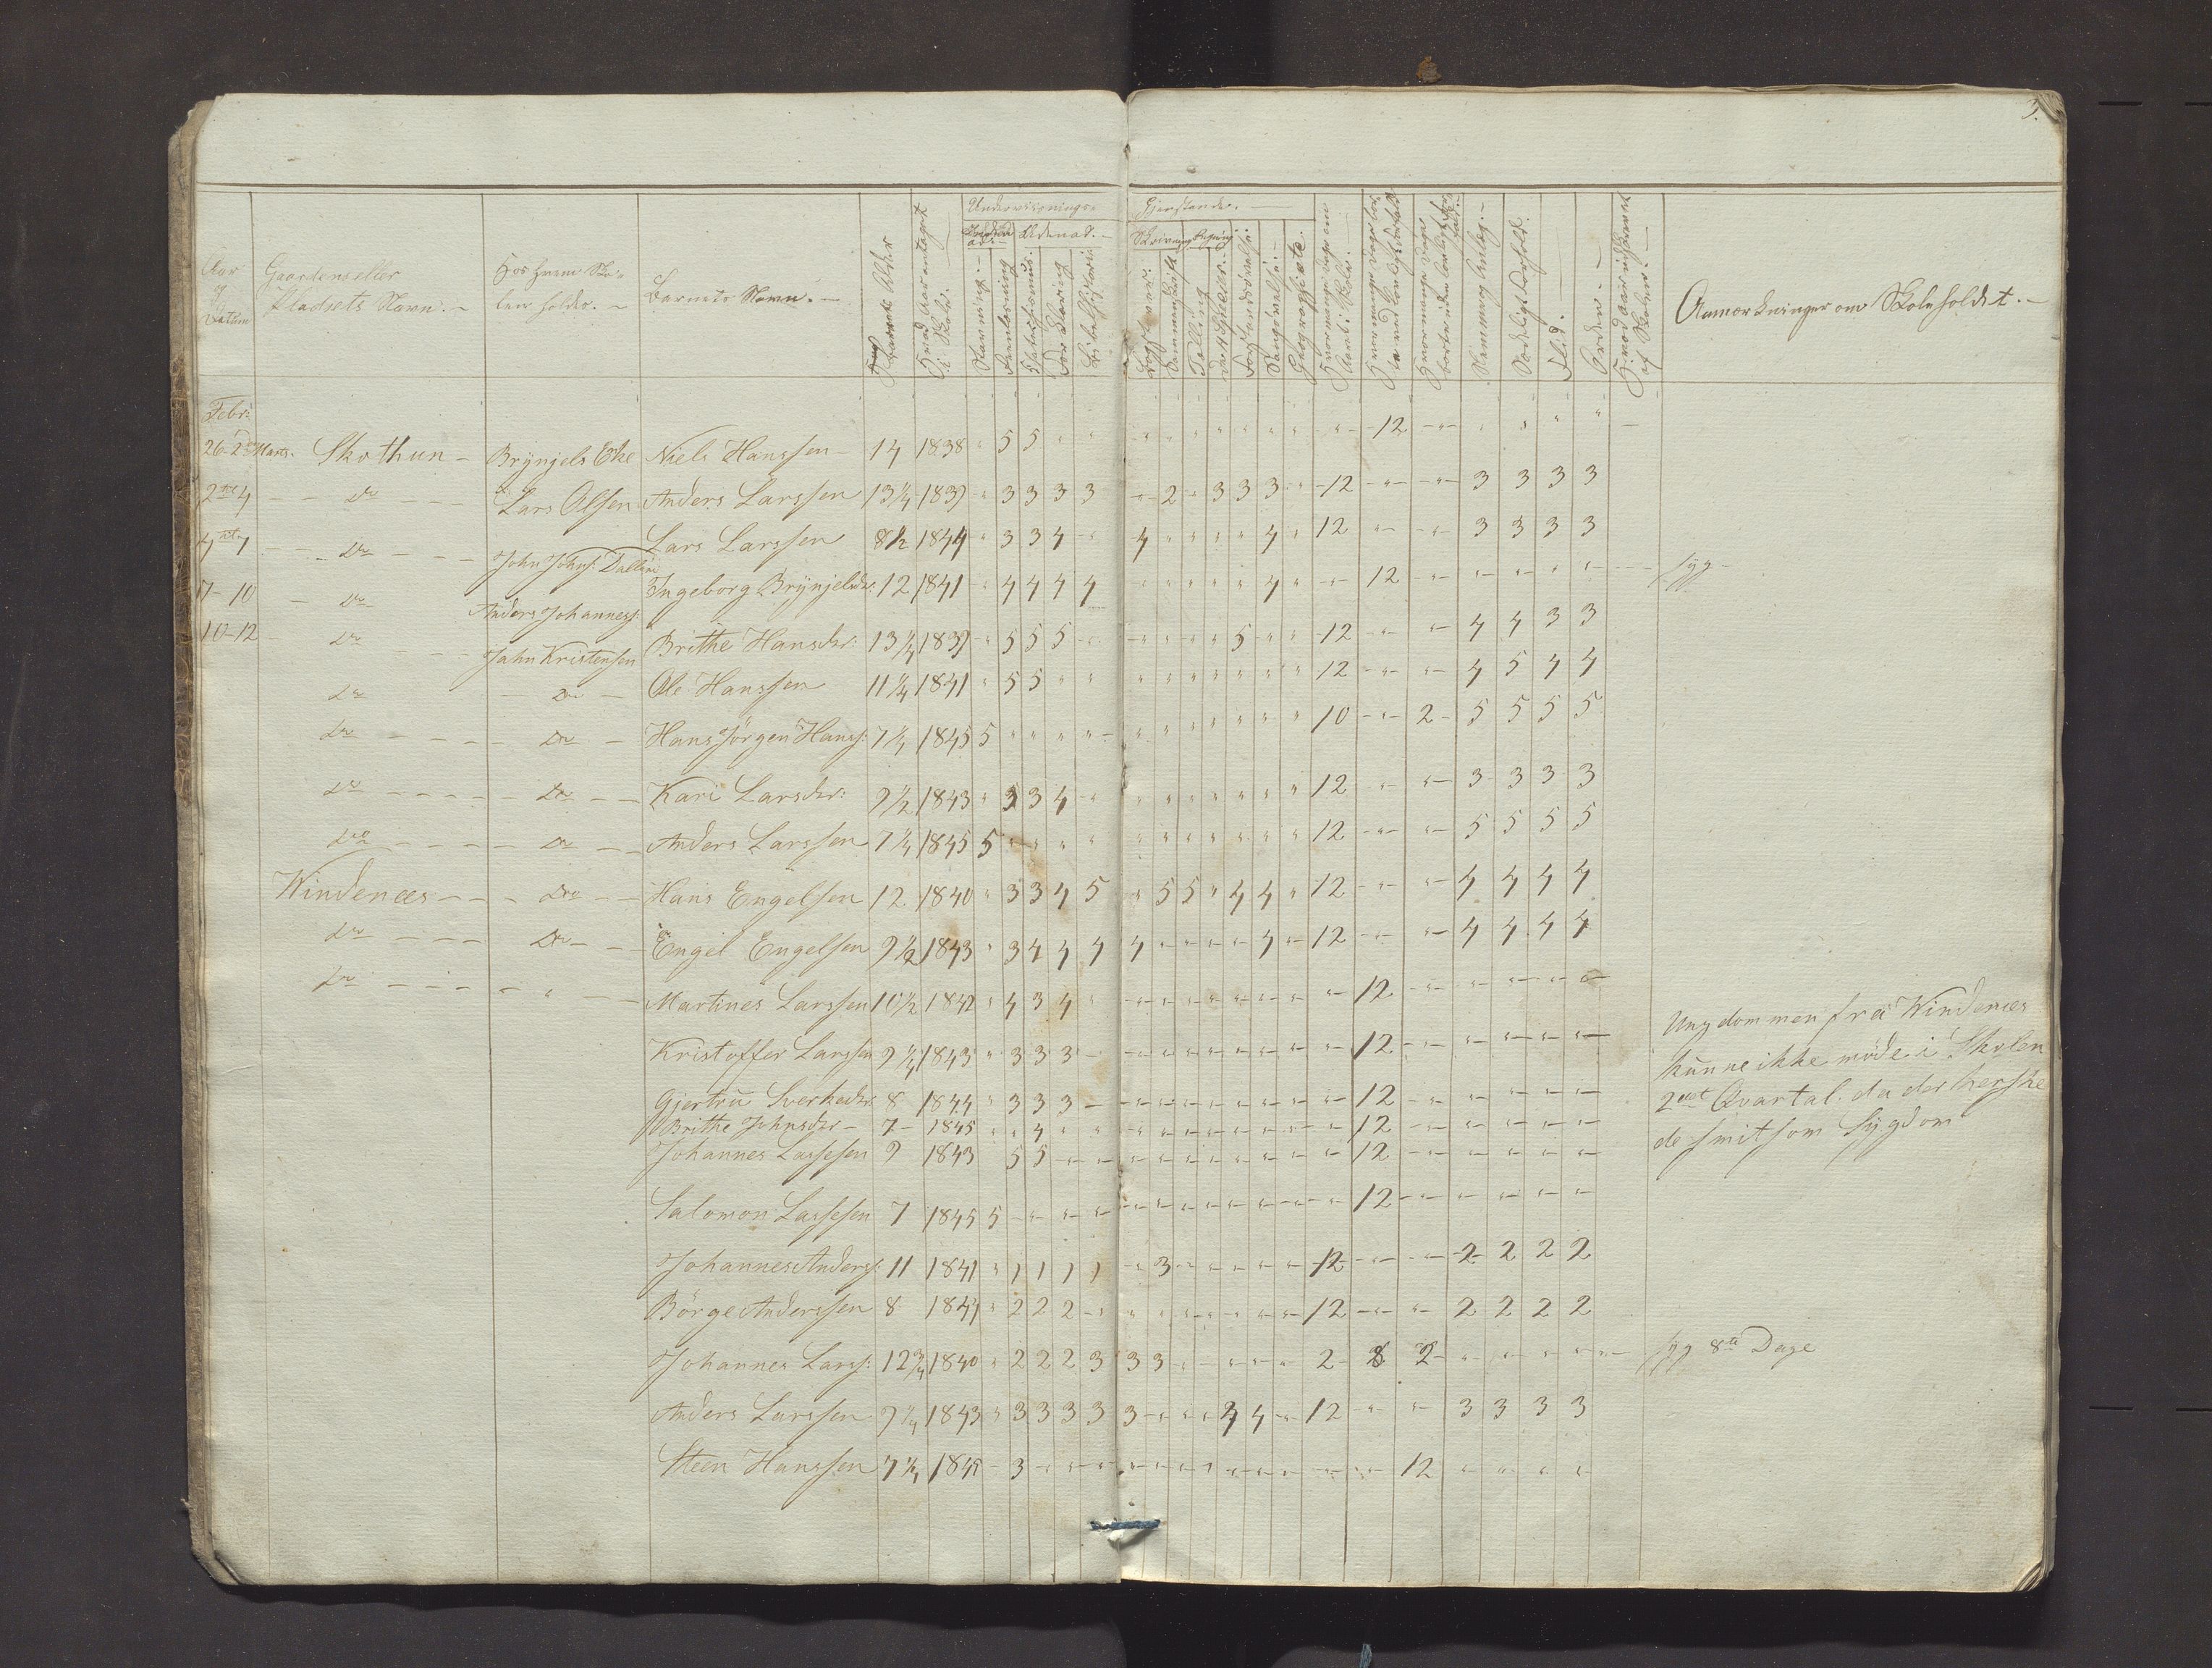 3.
Aar og Datum
Gaardens eller Pladsets Navn. -
Hos hvem Skolen holdes. -
Barnets Navn. -
Barnets Alder
Undervisnings-
Gjenstande. -
Udenad. -
Stavning. -
Forklaring
Bibelhistorie
Telling
Geographie
Sædeligt Forhold.
Flid. -
Orden. -
Anmærkninger om Skoleholdet. -
Febr:
26-2den Marts. Skothun - Brynjels Eke Niels Hanssen - 14 1838 " 5 5 " " 12
2-4 - - Do - - Lars Olsen Anders Larssen 13 1/4 1839 " 3 3 3 3 2 " 3 3 3 " 12 3 3 3 3
4-7 - - Do - - John Johns: Lars Larssen 8 1/2 1844 " 3 3 4 " 4 " " " " 4 " 12 3 3 3 3
7-10 - Do Anders Johanness: Ingeborg Brynjelsdr: 12 1841 " 4 4 4 4 4 " 12 syg -
10-12 - Do - - Jahn Kristensen Brithe Hansdr: 13 1/4 1839 " 5 5 5 5 12 4 4 3 3
Do - Do - Ole Hanssen 11 1/4 1841 " 5 5 " " 12 4 5 4 4
Do - - - Do - Hans Jörgen Hanss: 7 1/4 1845 5 10 2 5 5 5 5
Do - - - Do - - Kari Larsdr: 9 1/2 1843 " 3 3 4 12 3 3 3 3
Do - - - Do - - Anders Larssen 7 1/4 1845 5 12 5 5 5 5
Windenees - - - Do - - Hans Engelsen 12 1840 " 3 3 4 5 " 5 5 " 4 4 " 12 4 4 4 4
Do - - - Do - - Engel Engelsen 9 1/2 1843 " 3 4 4 4 4 4 12 4 4 4 4
Do - - - - " - - Martines Larssen 10 1/2 1842 " 4 3 4 " 12
Kristoffer Larssen 9 1/4 1843 " 3 3 3 - 12
Gjertru Sverkedr: 8 1844 " 3 3 3 - 12
Brithe Johnsdr - 7 - 1845 " " 4 " " 12
Johannes Lassesen 9 1843 5 5 12
Salomon Lassesen 7 1845 5 12
Johannes Anderss: 11 1841 " 1 1 1 1 3 12 2 2 2 2
Börge Anderssen 8 1844 " 2 2 2 12 2 2 2 2
Johannes Larss: 12 3/4 1840 " 2 2 2 3 3 3 2 8 2 syg 8te Dage
Anders Larssen 9 1/4 1843 " 3 3 3 3 3 4 12 3 3 3 3
Steen Hanssen 7 1/4 1845 - 3 12
Ungdommen fra Windenees
kunne ikke møde i Skolen
2det Qvartal. da der herske
de smitsom Sygdom